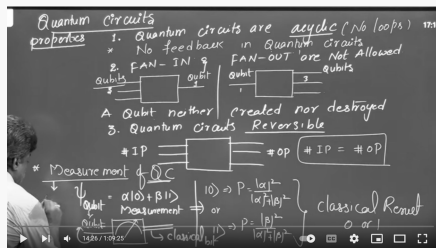 Quantum Circuits
properties 1. Quantum circuits are acyclic (No loops)
* No feedback in Quantum circuits
2. FAN-IN & FAN-OUT are Not Allowed
Qubits 3 Qubit 1 Qubit 1 3 Qubits
A Qubit neither created nor destroyed
3. Quantum Circuits Reversible
# IP # OP # IP = # OP
* Measurement of QC
Qubit α|0⟩ + β|1⟩ |0⟩ ⇒ P = |α|²/|α|²+|β|²
Measurement ⇒ or Classical Result
Qubit classical bit |1⟩ ⇒ P = |β|²/|α|²+|β|² 0 or 1
14:26 / 1:09:25